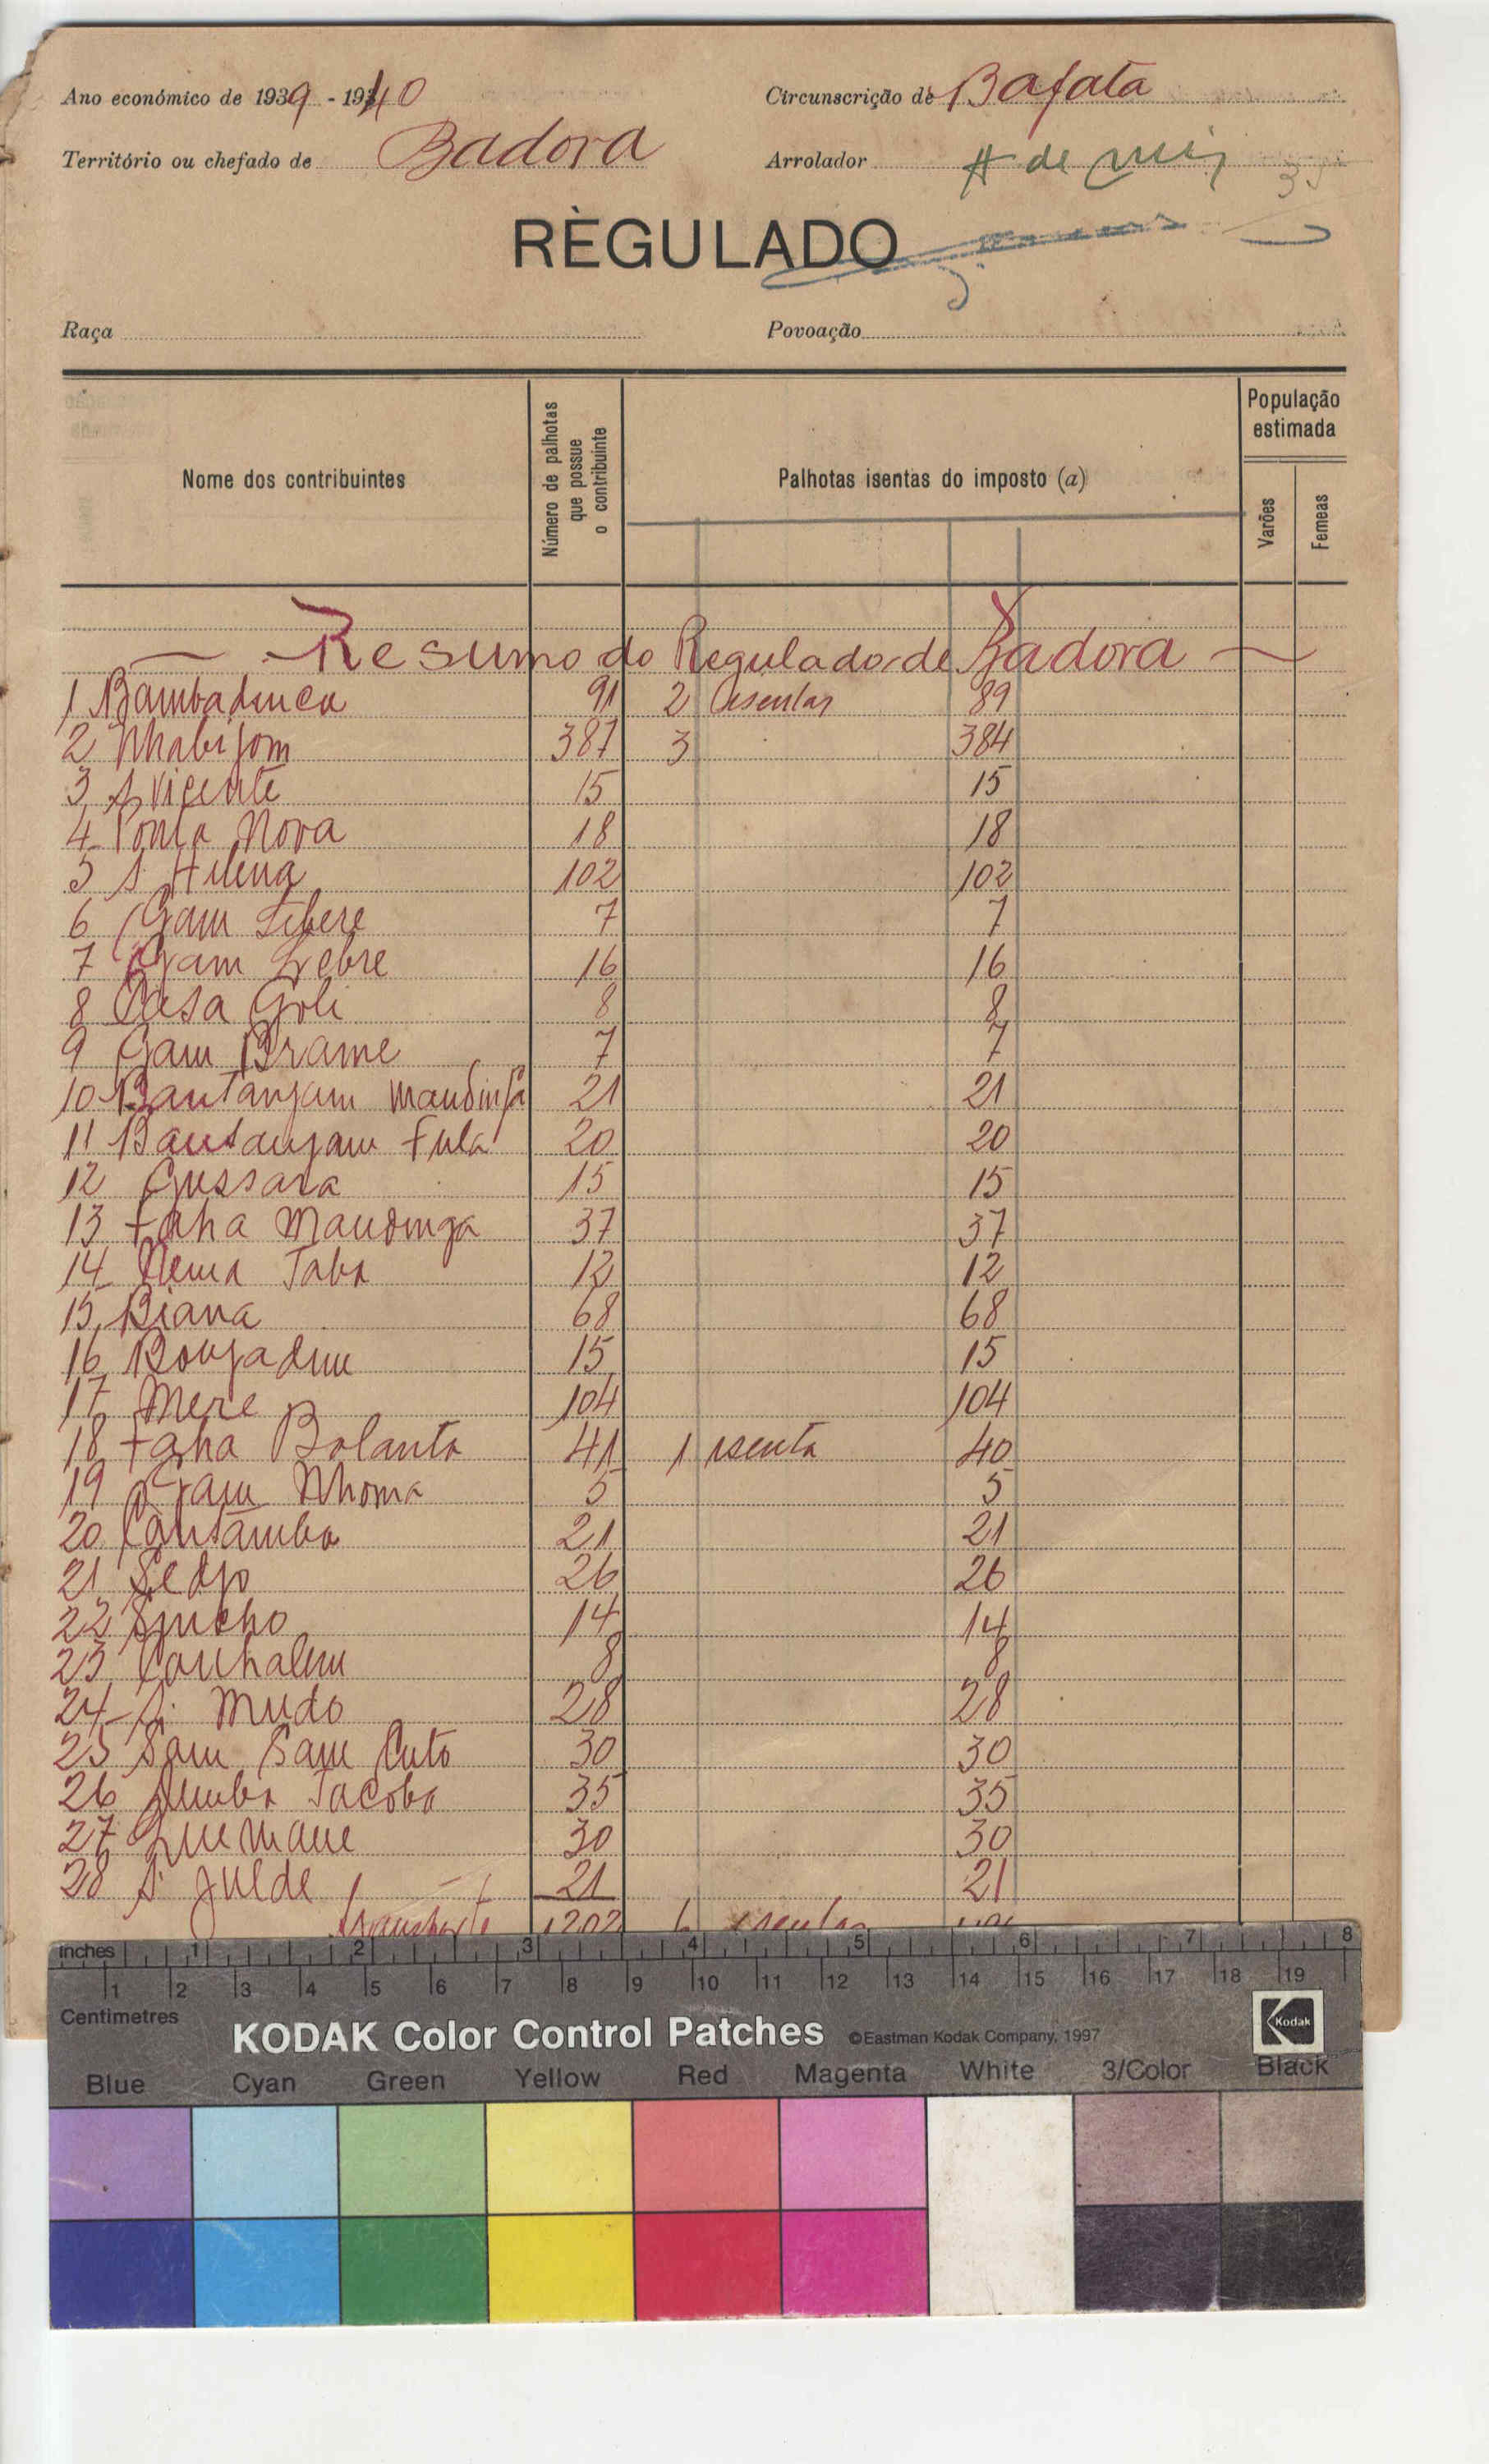 Ano económico de 1939 - 1940
Circunscrição de Bafata
Território ou chefado de Badora
Arrolador A de
RÈGULADO
Raça
Povoação
Nome dos contribuintes
Número de palhotas que possue o contribuinte
Palhotas isentas do imposto (a)
População estimada
Varões
Femeas
Resumo do Regulado de Badora
1 Bambadinca 91 2 isentas 89
2 Nhabijom 387 3 384
3 S Vicente 15 15
4 Ponta Nova 18 18
5 S Helena 102 102
6 Gam Libere 7 7
7 Gam Lebre 16 16
8 Casa Goli 8 8
9 Gam Brame 7 7
10 Bantanjam Mandinga 21 21
11 Bantanjam Fula 20 20
12 Gussara 15 15
13 Faha Mandinga 37 37
14 Nema Taba 12 12
15 Biana 68 68
16 Bonjadim 15 15
17 Mere 104 104
18 Faha Balanta 41 1 isenta 40
19 Gam Nhoma 5 5
20 Cantamba 21 21
21 26 26
22 14 14
23 Canhalim 8 8
24 S. Mudo 28 28
25 Sam Sam Cuto 30 30
26 Jacoba 35 35
27 Quemane 30 30
28 S. Julde 21 21
Transporte 1202 6 isentas
inches 1 2 3 4 5 6 7 8
1 2 3 4 5 6 7 8 9 10 11 12 13 14 15 16 17 18 19
Centimetres
KODAK Color Control Patches ©Eastman Kodak Company, 1997 Kodak
Blue Cyan Green Yellow Red Magenta White 3/Color Black